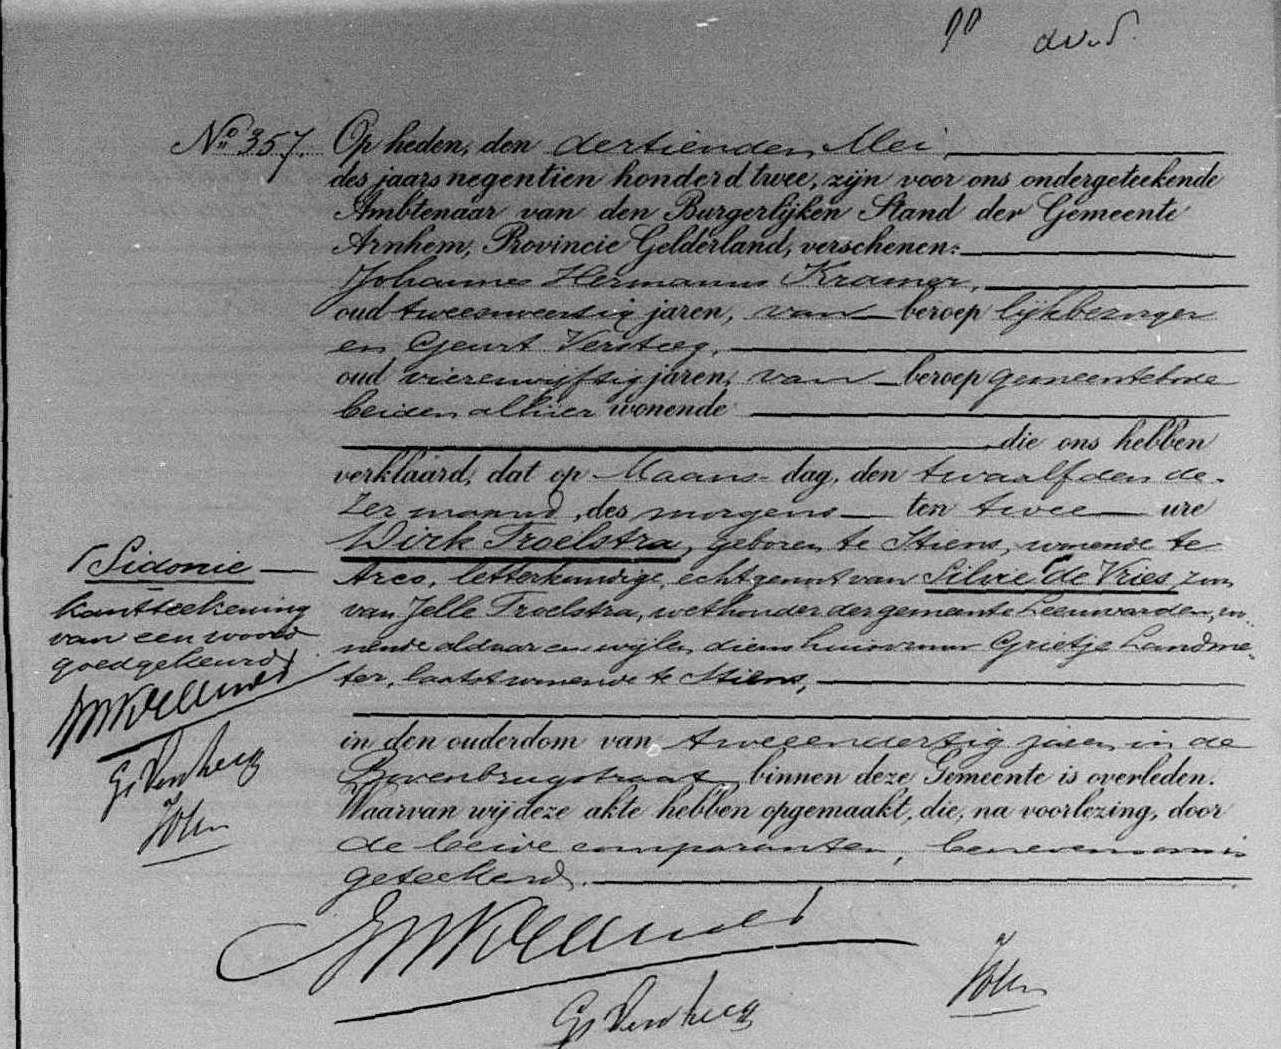 No 357. Op heden, den dertienden Mei,
des jaars negentien honderd twee, zijn voor ons ondergeteekende
Ambtenaar van den Burgerlijken Stand der Gemeente
Arnhem, Provincie Gelderland, verschenen:
Johannes Hermanus Kramer,
oud tweeenveertig jaren, van beroep lijkbezorger
en Geurt Versteeg,
oud vierenvijftig jaren, van beroep gemeentebode
beiden alhier wonende
die ons hebben
verklaard, dat op Maan- dag, den twaalfden de-
zer maand, des morgens ten twee ure
Dirk Troelstra, geboren te Stiens, wonende te
Arco, letterkundige, echtgenoot van Silvie de Vries, zoon
van Jelle Troelstra, wethouder der gemeente Leeuwarden, wo-
nende aldaar en wijlen diens huisvrouw Grietje Landme-
ter, laatst wonende te Stiens,
in den ouderdom van tweeendertig jaren in de
Bovenbrugstraat binnen deze Gemeente is overleden.
Waarvan wij deze akte hebben opgemaakt, die, na voorlezing, door
de beide comparanten, benevens ons is
geteekend.
Sidonie
kantteekening
van een woord
goedgekeurd
JHKramer
G Versteeg
JHKramer
G Versteeg